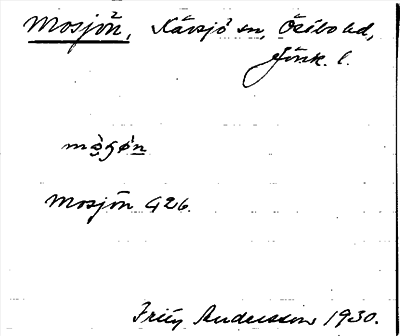 Mosjön, Kävsjö sn, Östbo hd,
Jönk. l.
mo̠s̠ö̀n
Mosjön G26.
Fritz Andersson 1930.